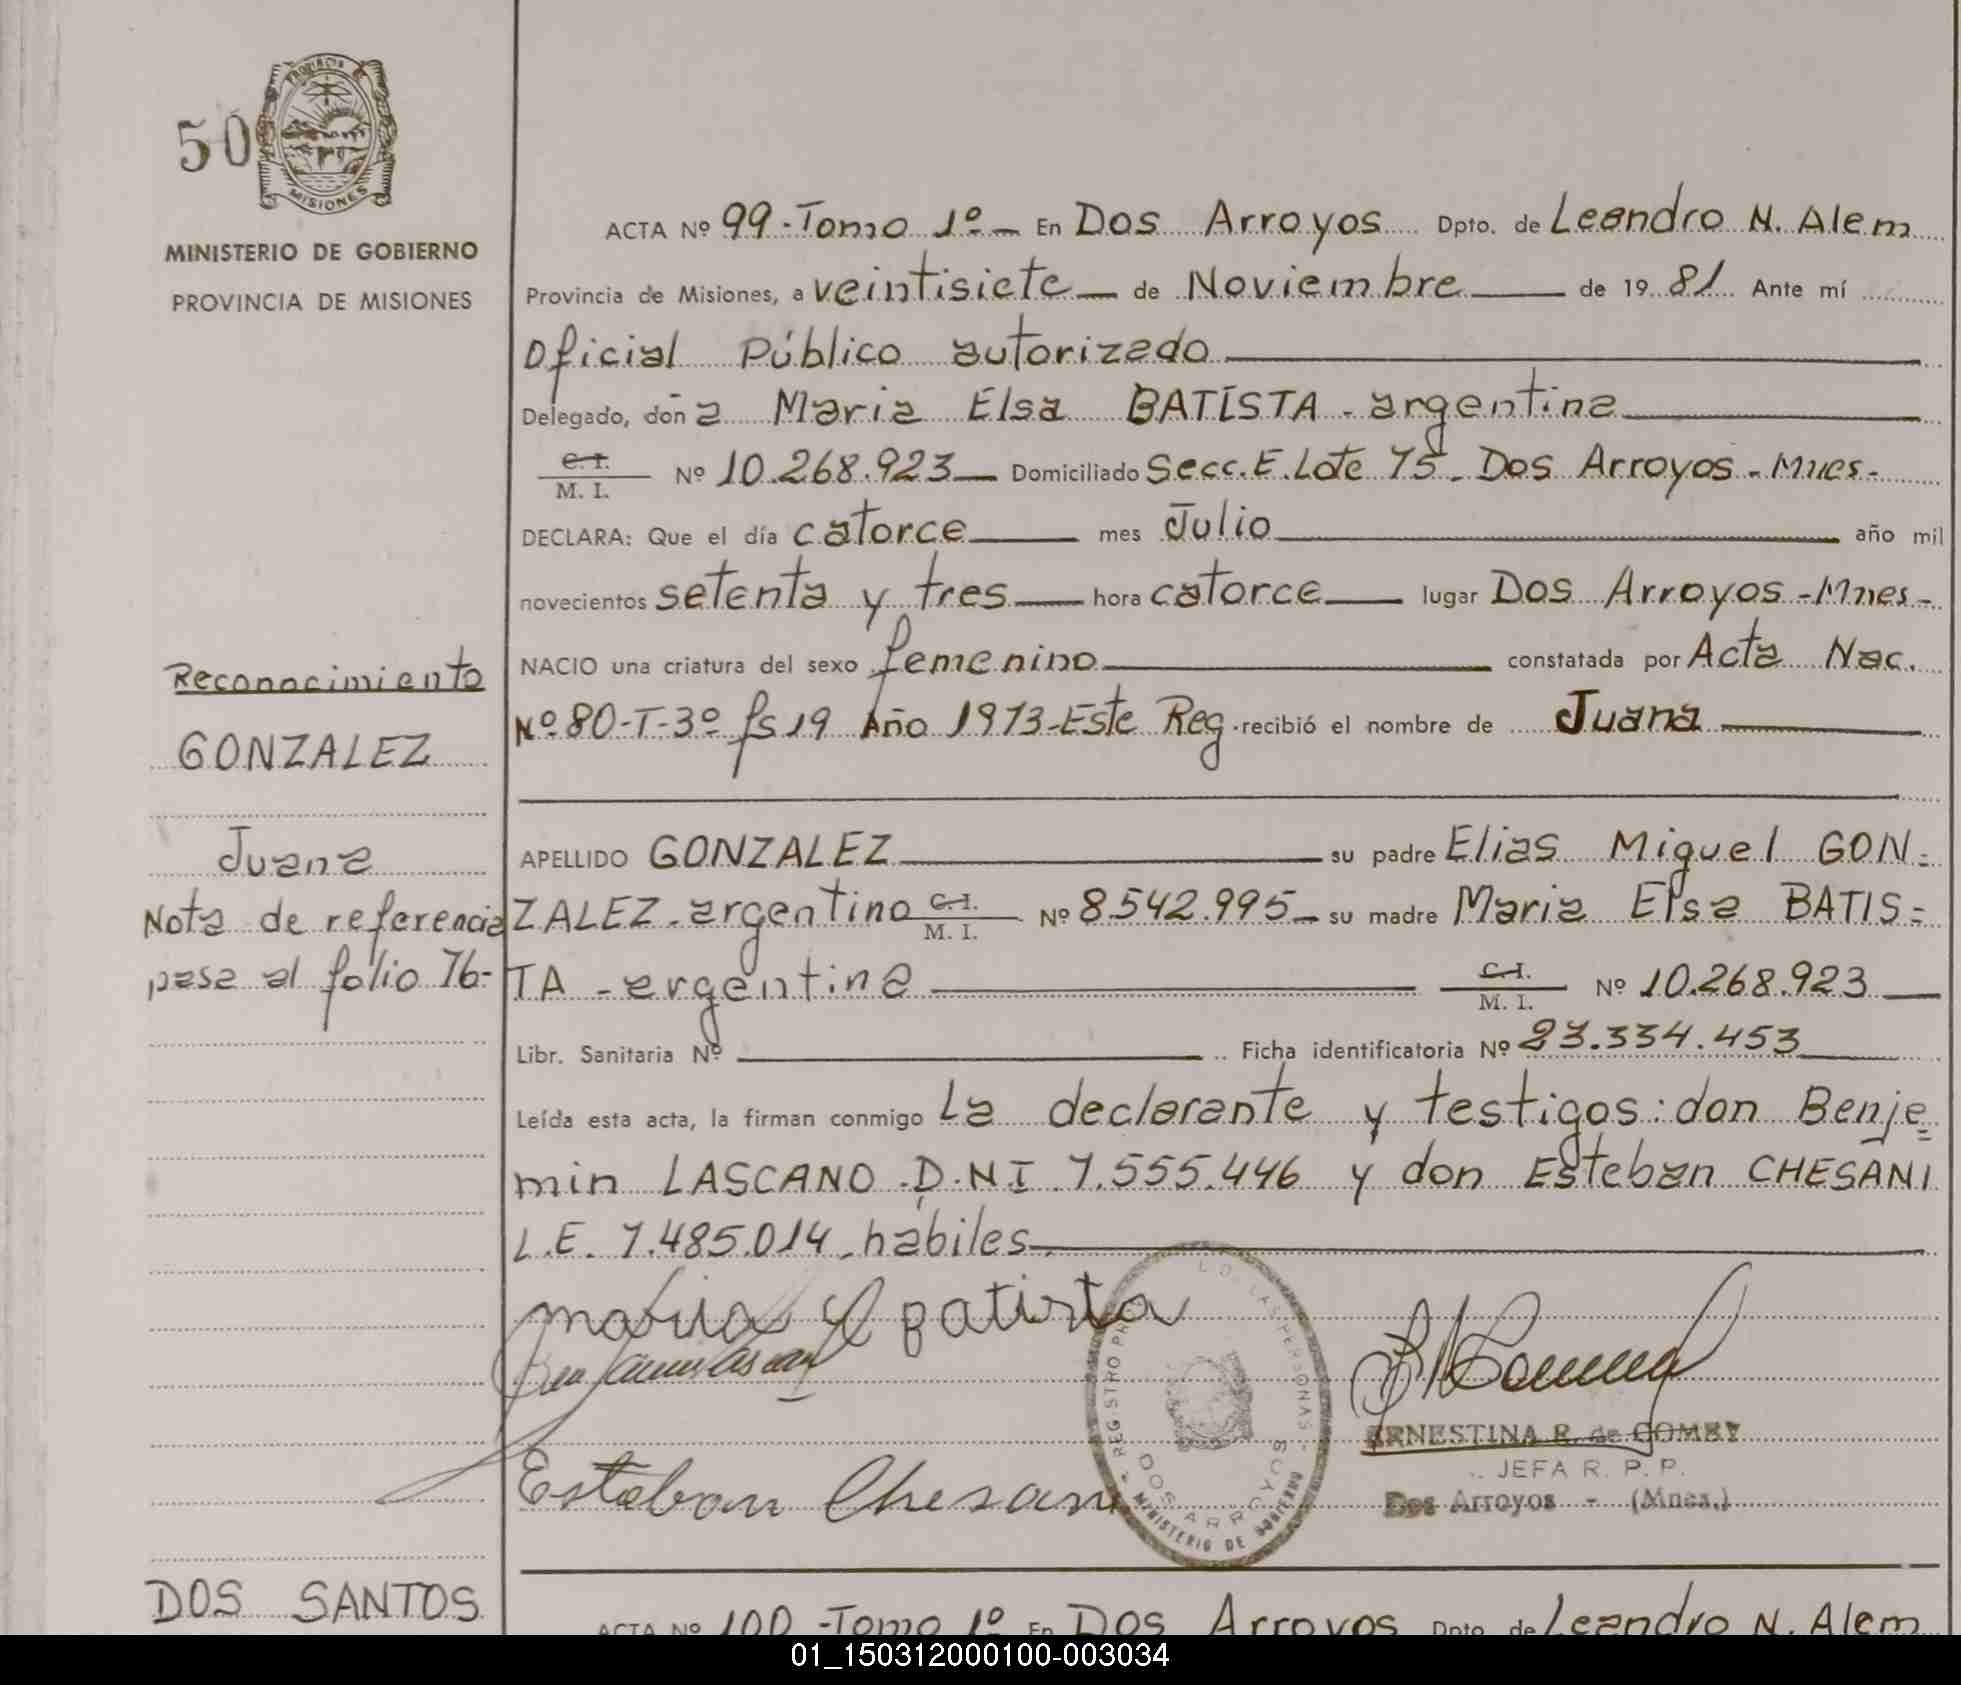 50
PROVINCIA DE
MISIONES
MINISTERIO DE GOBIERNO
PROVINCIA DE MISIONES
ACTA Nº 99-Tomo 1º - En Dos Arroyos Dpto. de Leandro N. Alem
Provincia de Misiones, a veintisiete de Noviembre de 19 81 Ante mí
Oficial Público autorizado
Delegado, doña Maria Elsa BATISTA - argentina
C. I. / M. I. Nº 10.268.923 Domiciliado Secc. E. Lote 75 - Dos Arroyos - Mnes -
DECLARA: Que el día catorce mes Julio año mil
novecientos setenta y tres hora catorce lugar Dos Arroyos - Mnes -
NACIO una criatura del sexo femenino constatada por Acta Nac.
Nº 80-T-3º fs 19 Año 1973-Este Reg. recibió el nombre de Juana
Reconocimiento
GONZALEZ
Juana
Nota de referencia
pasa al folio 76-
APELLIDO GONZALEZ su padre Elias Miguel GON-
ZALEZ - argentino C. I. / M. I. Nº 8.542.995 - su madre Maria Elsa BATIS-
TA - argentina C. I. / M. I. Nº 10.268.923
Libr. Sanitaria Nº Ficha identificatoria Nº 23.334.453
Leída esta acta, la firman conmigo La declarante y testigos: don Benja=
min LASCANO D.N.I 7.555.446 y don Esteban CHESANI
L.E. 7.485.014, hábiles
maria E batista
Benjamin Lascano
Esteban Chesani
REGISTRO PR LAS PERSONAS
DOS ARROYOS
MINISTERIO DE GOBIERNO
ERNESTINA R. de GOMEZ
JEFA R. P. P.
Dos Arroyos - (Mnes.)
DOS SANTOS
ACTA Nº 100 -Tomo 1º En Dos Arroyos Dpto. de Leandro N. Alem
01_150312000100-003034